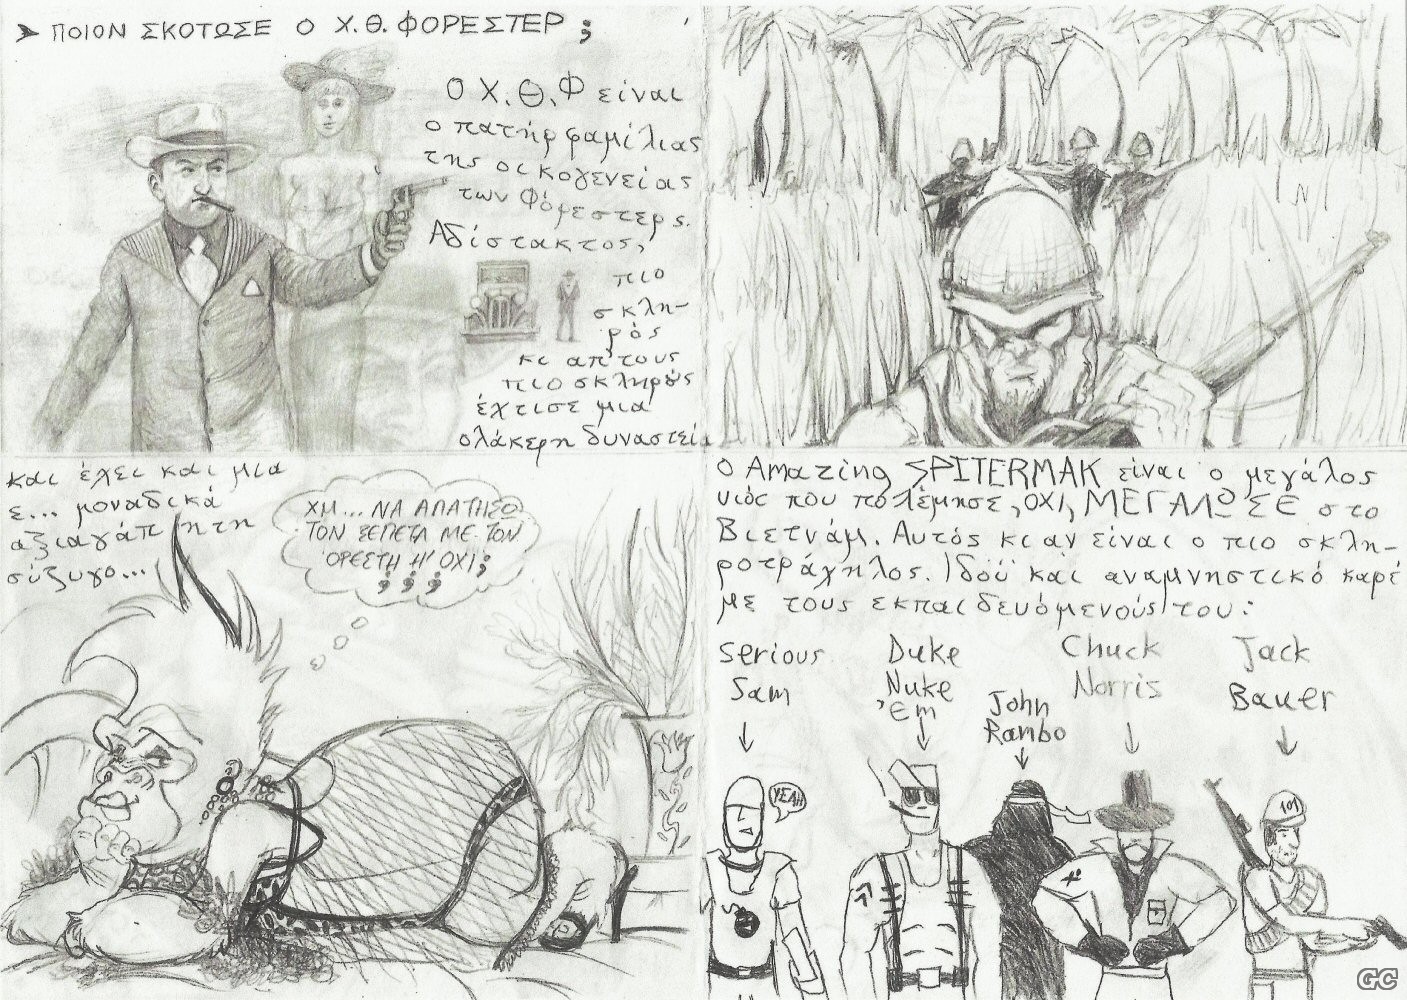 ➤ ΠΟΙΟΝ ΣΚΟΤΩΣΕ Ο Χ.Θ.ΦΟΡΕΣΤΕΡ;
Ο Χ.Θ.Φ είναι
ο πατήρ φαμίλιας
της οικογενείας
των Φόρεστερς.
Αδίστακτος,
πιο
σκλη-
ρός
κι απ'τους
πιο σκληρούς
έχτισε μια
ολάκερη δυναστεία
και έχει και μια
ε... μοναδικά
αξιαγάπητη
σύζυγο...
ΧΜ... ΝΑ ΑΠΑΤΗΣΩ
ΤΟΝ ΞΕΠΕΤΑ ΜΕ ΤΟΝ
ΟΡΕΣΤΗ Η' ΟΧΙ;
;;;
Ο Amazing SPITERMAK είναι ο μεγάλος
υιός που πολέμησε, ΟΧΙ, ΜΕΓΑΛΩΣΕ στο
Βιετνάμ. Αυτός κι αν είναι ο πιο σκλη-
ροτράχηλος. Ιδού και αναμνηστικό καρέ
με τους εκπαιδευόμενούς του:
Serious
Sam
Duke
Nuke
'Em
John
Rambo
Chuck
Norris
Jack
Bauer
YEAH
101
GC